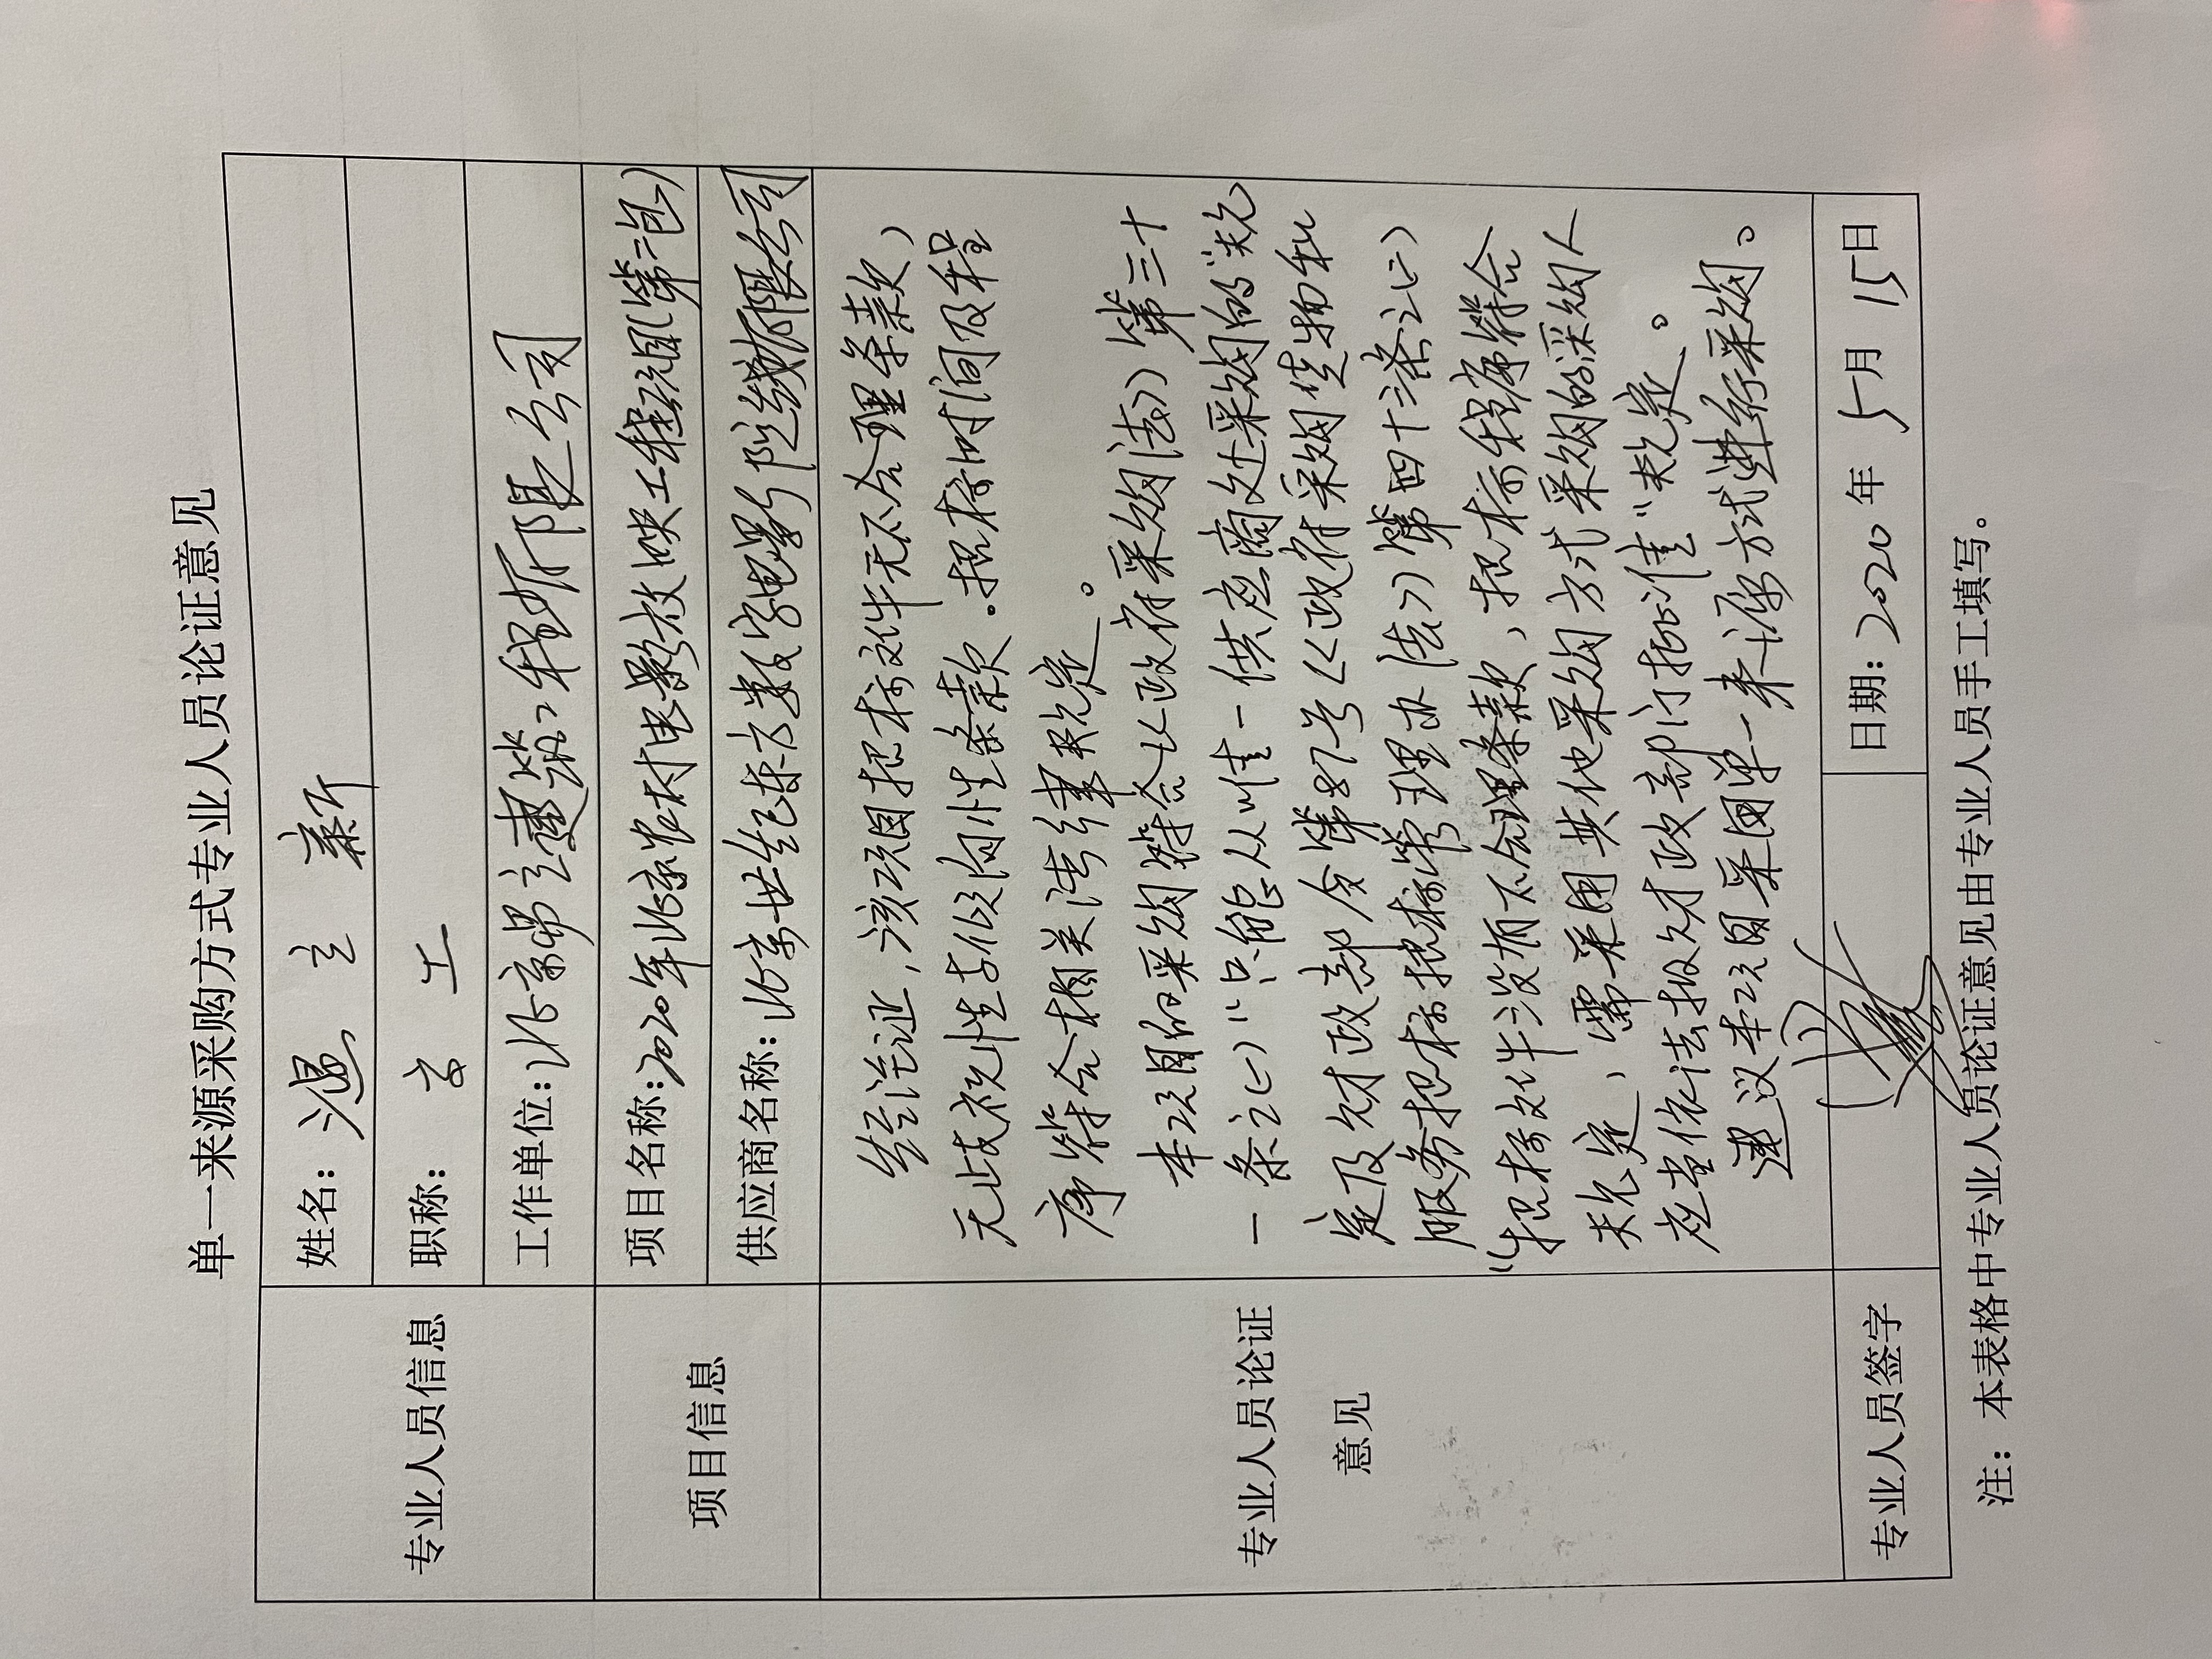 单一来源采购方式专业人员论证意见
专业人员信息
姓名：温立新
职称：高工
工作单位：北京昂立建筑工程有限公司
项目信息
项目名称：2020年北京农村电影放映工程项目（第二包）
供应商名称：北京世纪东方数字电影院线有限公司
专业人员论证
意见
经论证，该项目招标文件无不合理条款，
无歧视性与倾向性条款。招标时间及程
序符合相关法律规定。
本项目的采购符合《政府采购法》第三十
一条之(一)“只能从唯一供应商处采购的”规
定及财政部令第87号《政府采购货物和
服务招标投标管理办法》第四十三条之(二)
“招标文件没有不合理条款，招标程序符合
规定，需采用其他采购方式采购的采购人
应当依法报财政部门批准”规定。
建议本项目采用单一来源方式进行采购。
专业人员签字
日期：2020年5月15日
注：本表格中专业人员论证意见由专业人员手工填写。